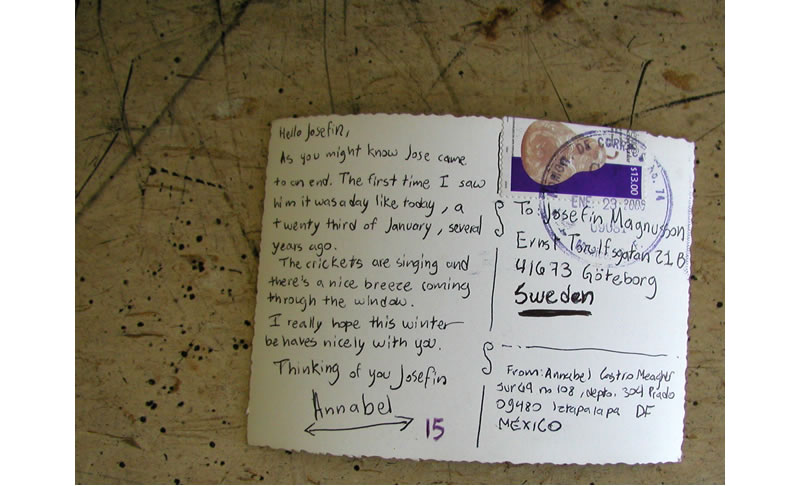 Hello Josefin,
As you might know Jose came
to an end. The first time I saw
him it was a day like today, a
twenty third of January, several
years ago.
The crickets are singing and
there's a nice breeze coming
through the window.
I really hope this winter
behaves nicely with you.
Thinking of you Josefin
Annabel
15
$13.00
DE CORREOS No. 14
ENE. 23 2006
To: Josefin Magnusson
Ernst Torulfsgatan 21B
41673 Göteborg
Sweden
From: Annabel Castro Meagher
sur 69 no 108, depto. 304 Prado
09480 Iztapalapa DF
MÉXICO